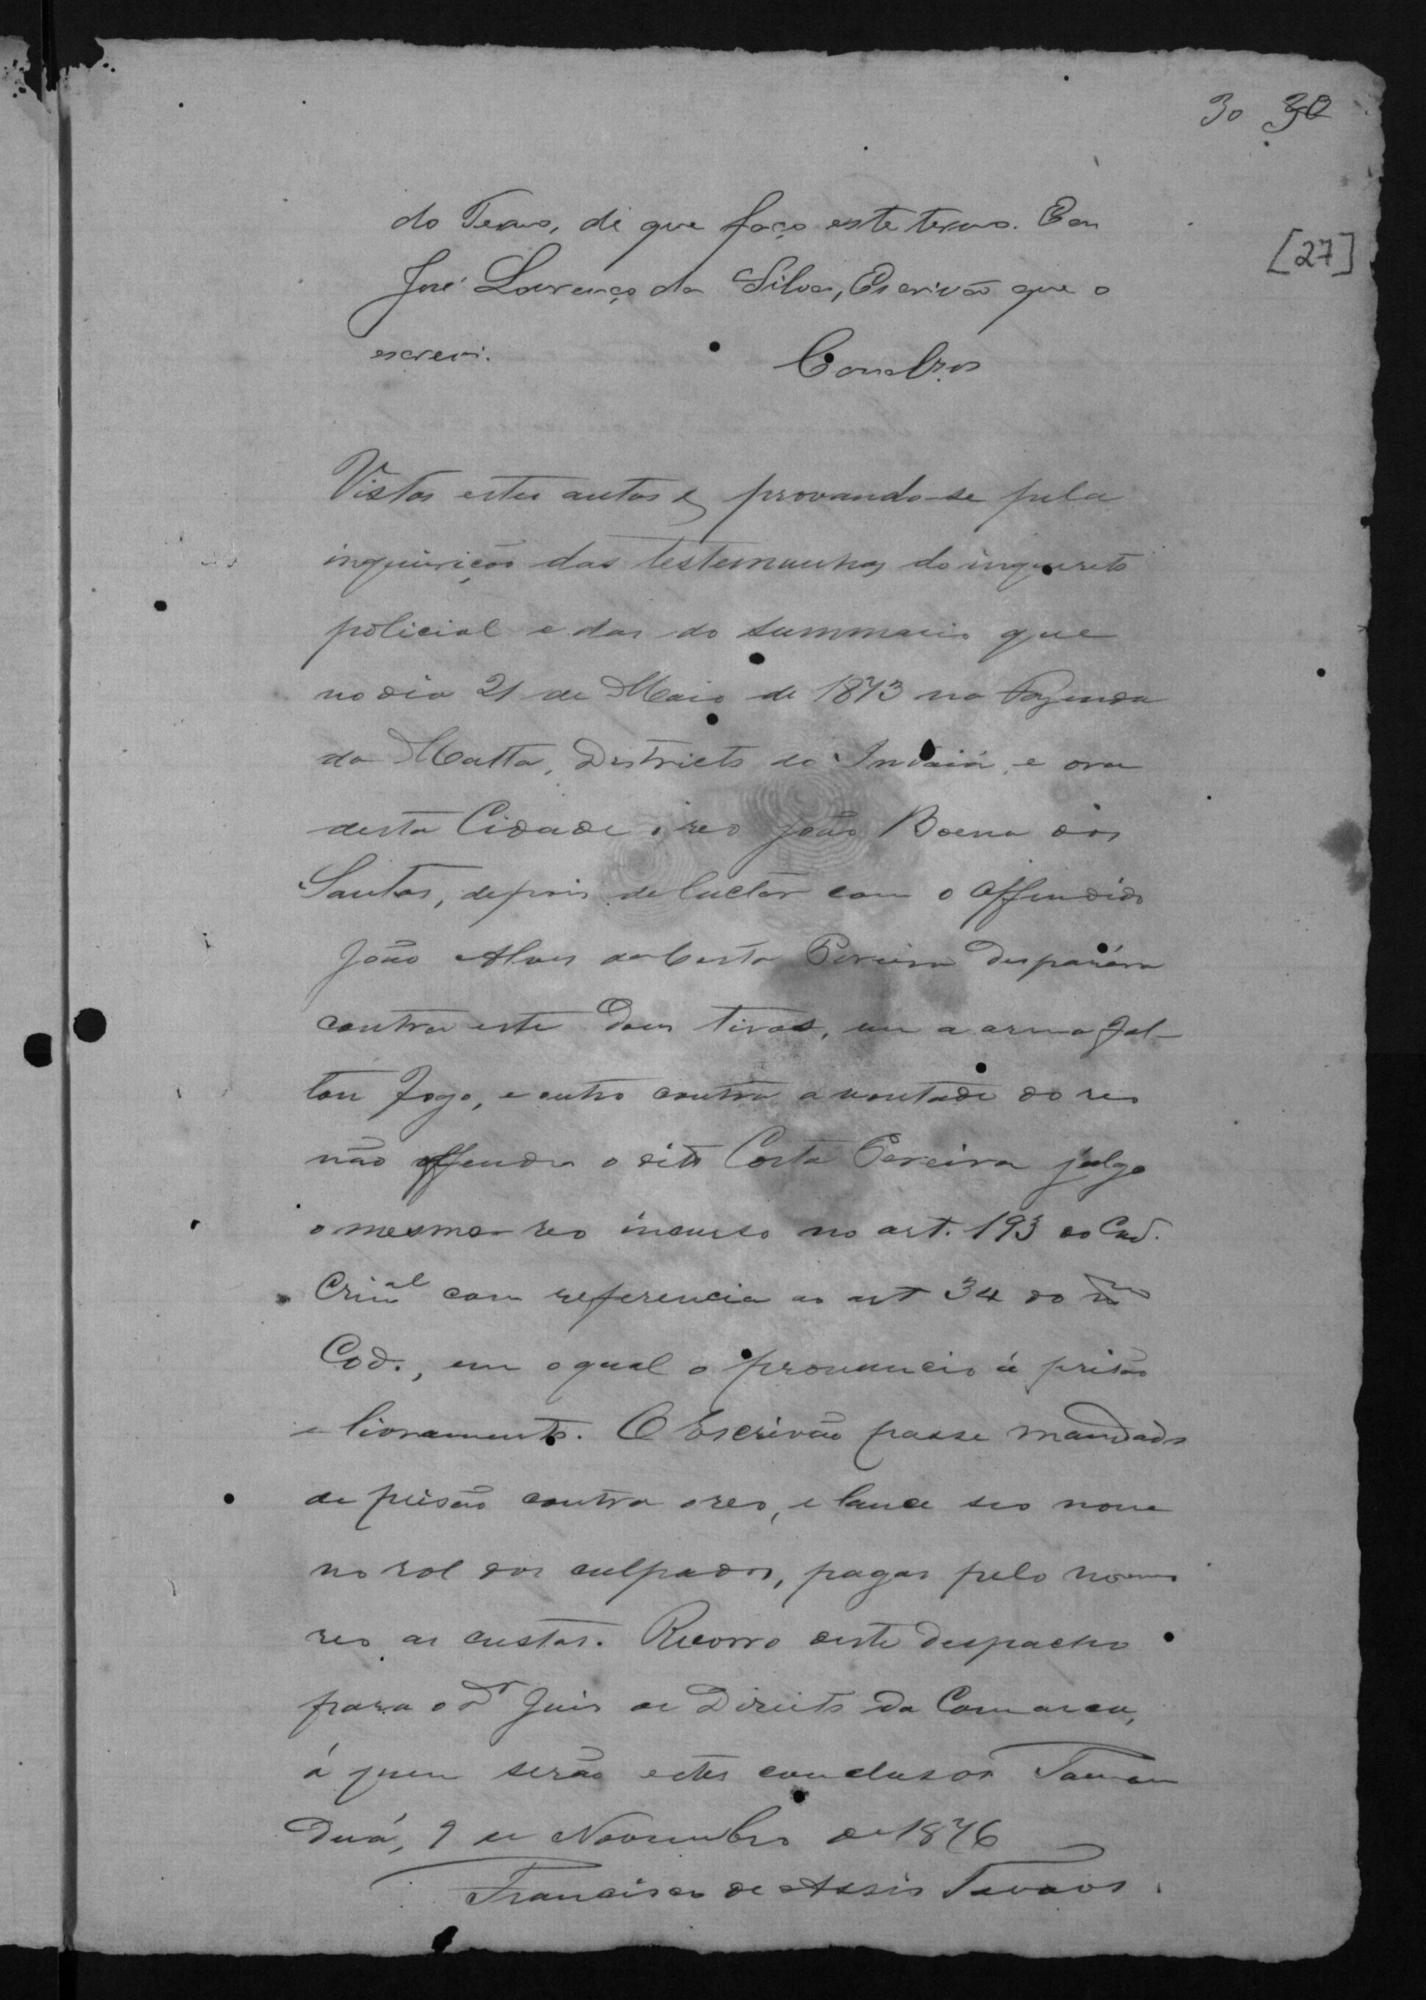 30 30
[27]
do Termo, de que faço este termo. Eu
José Lourenço da Silva, Escrivão que o
escrevi.
Conclzos
Vistos estes autos e, provando-se pela
inquirição das testemunhas do inquerito
policial e das do summario que
no dia 21 de Maio de 1873 na Fazenda
da Matta, Districto do Indaiá, e ora
desta Cidade, o reo João Baena dos
Santos, depois de luctar com o offendido
João Alves da Costa Pereira disparára
contra este dous tiros, um a arma fal-
tou fogo, e outro contra a vontade do reo
não offendeu o dito Costa Pereira julgo
o mesmo reo incurso no art. 193 do Cod.
Crimal com referencia ao art 34 do mmo
Cod., em o qual o pronuncio á prisão
e livramento. O Escrivão passe mandado
de prisão contra o reo, e lance seo nome
no rol dos culpados, pagas pelo mesmo
reo as custas. Recorro deste despacho
para o Dr Juis de Direito da Comarca,
á quem serão estes conclusos Taman
duá, 9 de Novembro de 1876
Francisco de Assis Tavares